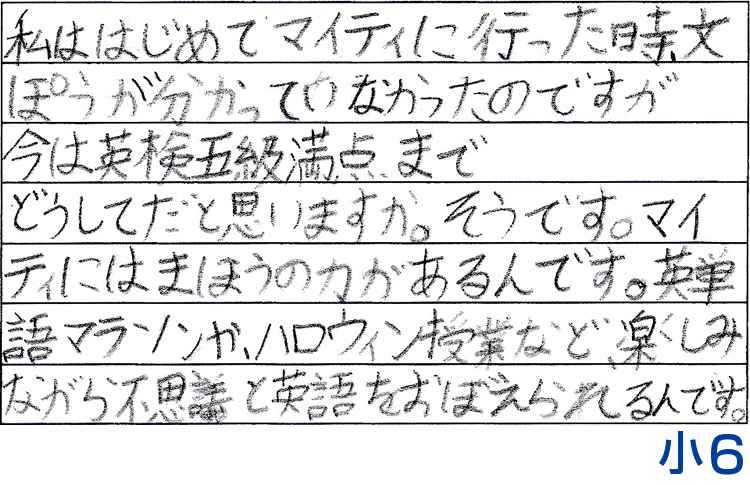 私ははじめてマイティに行った時、文
ぽうが分かっていなかったのですが
今は英検五級満点まで
どうしてだと思いますか。そうです。マイ
ティにはまほうの力があるんです。英単
語マラソンや、ハロウィン授業など、楽しみ
ながら不思議と英語をおぼえられるんです。
小6